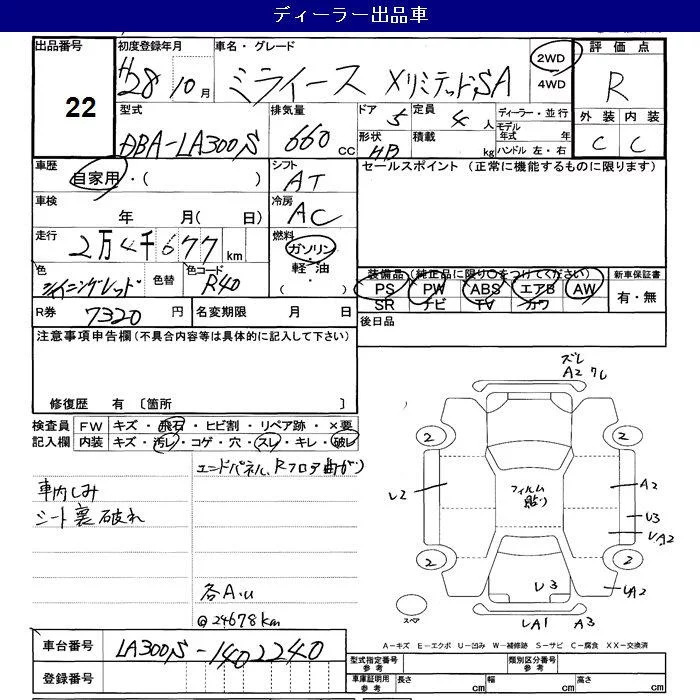 ディーラー出品車
出品番号
22
初度登録年月
H28 10月
車名・グレード
ミライース XリミテッドSA
2WD
4WD
評価点
R
型式
DBA-LA300S
排気量
660 cc
ドア
5
定員
4 人
形状
HB
積載
kg
ディーラー・並行
モデル年式 年
ハンドル 左・右
外装 内装
C C
車歴
自家用・( )
シフト
AT
セールスポイント (正常に機能するものに限ります)
車検
年 月( 日)
冷房
AC
走行
2万4千677km
燃料
ガソリン・
軽・油
・( )
色
シャイニングレッド
色替
色コード
R40
装備品(純正品に限り○をつけてください)
PS PW ABS エアB AW
SR ナビ TV カワ
新車保証書
有・無
R券 7320円
名変期限 月 日
後日品
注意事項申告欄(不具合内容等は具体的に記入して下さい)
修復歴 有 〔箇所 〕
検査員記入欄
FW キズ・飛石・ヒビ割・リペア跡・×要
内装 キズ・汚レ・コゲ・穴・スレ・キレ・破レ
エンドパネル、Rフロア曲がり
車内しみ
シート裏破れ
各A.U
@24678km
ズレ
A2 ワレ
2
2
U2
フィルム貼り
A2
U3
UA2
2
2
UA2
U3
スペア
UA1 A3
A-キズ E-エクボ U-凹み W-補修跡 S-サビ C-腐食 XX-交換済
車台番号
LA300S-1402240
登録番号
型式指定番号
参考
類別区分番号
参考
車庫証明用
参考
長さ cm
幅 cm
高さ cm